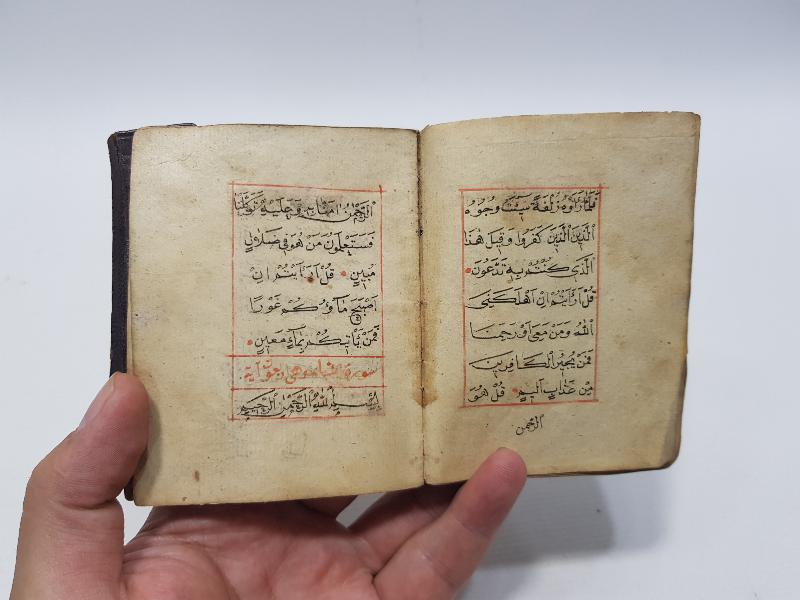 فَلَمَّا رَاَوْهُ زُلْفَةً سِيئَتْ وُجُوهُ
الَّذِينَ الَّذِينَ كَفَرُوا وَقِيلَ هٰذَا
الَّذِي كُنْتُمْ بِهِ تَدَّعُونَ
قُلْ اَرَاَيْتُمْ اِنْ اَهْلَكَنِيَ
اللّٰهُ وَمَنْ مَعِيَ اَوْ رَحِمَنَا
فَمَنْ يُجِيرُ الْكَافِرِينَ
مِنْ عَذَابٍ اَلِيمٍ قُلْ هُوَ
الرحمن
الرَّحْمٰنُ اٰمَنَّا بِهِ وَعَلَيْهِ تَوَكَّلْنَا
فَسَتَعْلَمُونَ مَنْ هُوَ فِي ضَلَالٍ
مُبِينٍ قُلْ اَرَاَيْتُمْ اِنْ
اَصْبَحَ مَاؤُكُمْ غَوْرًا
فَمَنْ يَأْتِيكُمْ بِمَاءٍ مَعِينٍ
سورة وهي اربعون اية
بِسْمِ اللّٰهِ الرَّحْمٰنِ الرَّحِيمِ